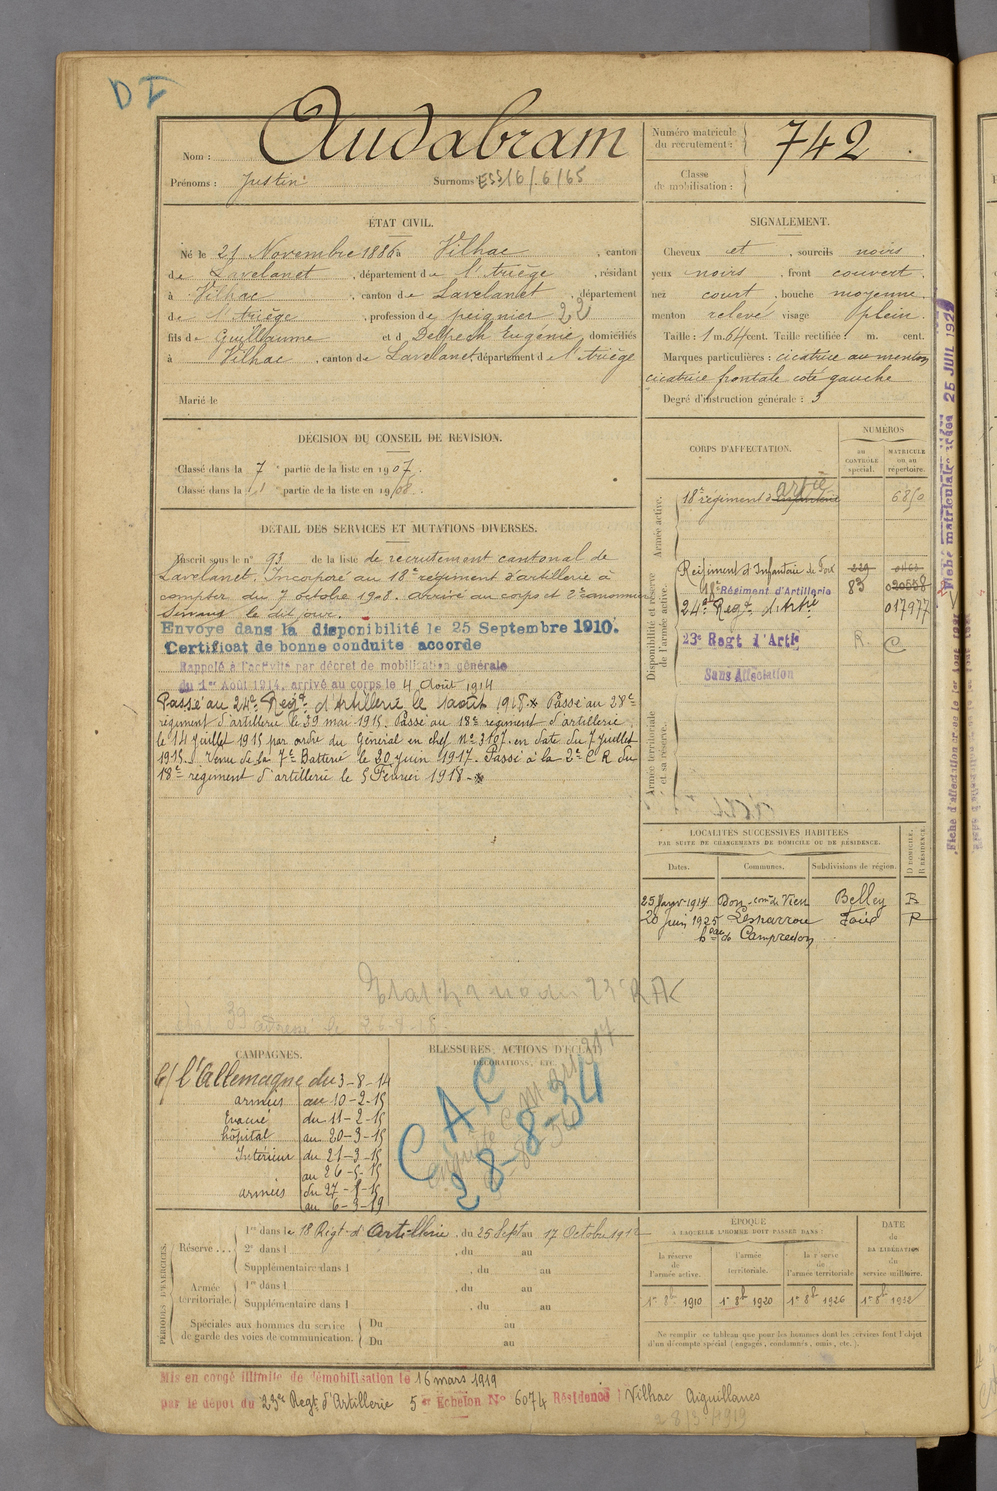 D I
Nom : Audabram
Prénoms : Justin Surnoms : ESS 16/6/65
Numéro matricule du recrutement : 742
Classe de mobilisation :
ÉTAT CIVIL.
Né le 21 Novembre 1886 à Vilhac, canton
de Lavelanet, département de l'Ariège, résidant
à Vilhac, canton de Lavelanet, département
de l'Ariège, profession de peignier 22
fils de Guillaume et d Delpech Eugénie, domiciliés
à Vilhac, canton de Lavelanet département d l'Ariège
Marié le
SIGNALEMENT.
Cheveux et, sourcils noirs,
yeux noirs, front couvert,
nez court, bouche moyenne,
menton relevé visage plein.
Taille : 1 m. 64 cent. Taille rectifiée : m. cent.
Marques particulières : cicatrice au menton
cicatrice frontale coté gauche
Degré d'instruction générale : 3
DÉCISION DU CONSEIL DE REVISION.
Classé dans la 7e partie de la liste en 1907.
Classé dans la 1e partie de la liste en 1908.
DÉTAIL DES SERVICES ET MUTATIONS DIVERSES.
Inscrit sous le n° 93 de la liste de recrutement cantonal de
Lavelanet. Incorporé au 18e régiment d'artillerie à
compter du 7 octobre 1908. Arrivé au corps et 2e canonnier
servant le dit jour.
Envoyé dans la disponibilité le 25 Septembre 1910.
Certificat de bonne conduite accordé
Rappelé à l'activité par décret de mobilisation générale
du 1er Août 1914, arrivé au corps le 4 Août 1914
Passé au 24e Regt d'Artillerie le 1 août 1918. Passé au 28e
régiment d'artillerie le 29 mai 1915. Passé au 18e régiment d'artillerie
le 14 juillet 1915 par ordre du Général en chef N° 3107 en date du 7 juillet
1915. Venu de la 7e Batterie le 20 juin 1917. Passé à la 2e C R du
18e régiment d'artillerie le 5 Février 1918.
CORPS D'AFFECTATION.
NUMÉROS
AU CONTRÔLE spécial.
MATRICULE OU AU répertoire.
Armée active.
18e régiment d'infanterie artie 6850
Disponibilité et réserve de l'armée active.
Régiment d'Infanterie de Foix
18e Régiment d'Artillerie 83 020558
24e Regt d'Artie 017977
23e Regt d'Artie R. C
Sans Affectation
Armée territoriale et sa réserve.
LOCALITÉS SUCCESSIVES HABITÉES
PAR SUITE DE CHANGEMENTS DE DOMICILE OU DE RÉSIDENCE.
Dates. Communes. Subdivisions de région. D DOMICILE. R RÉSIDENCE.
25 Janv 1914 Don - com de Vieu Belley R
20 juin 1925 Lesparrou Foix R
heau de Campredon
CAMPAGNES.
C/ l'Allemagne du 3-8-14
armées au 10-2-15
Evacué du 11-2-15
hôpital au 20-3-15
Intérieur du 21-3-15
au 26-5-15
armées du 27-5-15
au 6-3-19
BLESSURES, ACTIONS D'ÉCLAT,
DÉCORATIONS, ETC.
C A C
28-8-34
PÉRIODES D'EXERCICES.
Réserve ... 1re dans le 18 Régt d'Artillerie, du 25 Sept au 17 Octobre 1912
2e dans l , du au
Supplémentaire dans l , du au
Armée territoriale. 1re dans l , du au
Supplémentaire dans l , du au
Spéciales aux hommes du service de garde des voies de communication. Du au
Du au
ÉPOQUE
À LAQUELLE L'HOMME DOIT PASSER DANS :
la réserve de l'armée active. l'armée territoriale. la réserve de l'armée territoriale
DATE DE LA LIBÉRATION du service militaire.
1er 8bre 1910 1er 8bre 1920 1er 8bre 1926 1er 8bre 1932
Ne remplir ce tableau que pour les hommes dont les services font l'objet
d'un décompte spécial (engagés, condamnés, omis, etc.).
Mis en congé illimité de démobilisation le 16 mars 1919
par le dépôt du 23e Regt d'Artillerie 5e Echelon N° 6074 Résidence : Vilhac Aiguillanes
28/3/1919